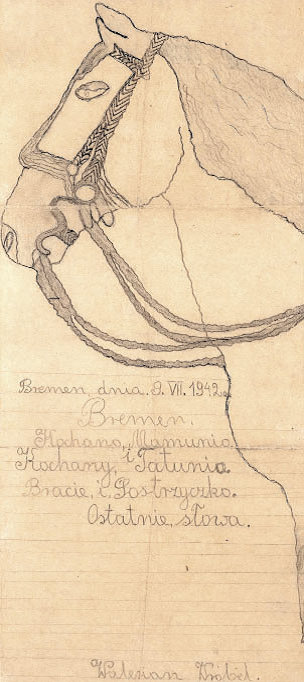 Bremen, dnia. 9. VII. 1942.
Bremen.
Kochano, Mamunio,
Kochany, i Tatunio.
Bracie, i Sostrzyczko.
Ostatnie, słowa.
Walerian Wróbel.